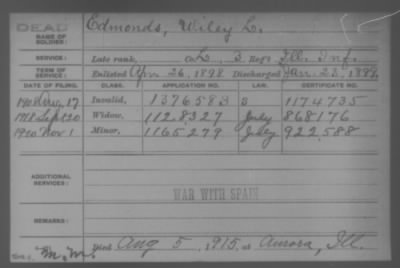 DEAD
NAME OF SOLDIER: Edmonds, Wiley L.
SERVICE: Late rank, Co L, 3 Reg't Ill. Inf.
TERM OF SERVICE: Enlisted Apr. 26, 1898 Discharged Jan. 23, 1899
DATE OF FILING. CLASS. APPLICATION NO. LAW. CERTIFICATE NO.
17 Invalid, 1376583 S 1174735
1918 Sept 20 Widow, 1128327 868176
1920 Nov 1 Minor, 1165279 922588
ADDITIONAL SERVICES:
WAR WITH SPAIN
REMARKS:
Died Aug 5, 1915, at Aurora, Ill.
M.M.